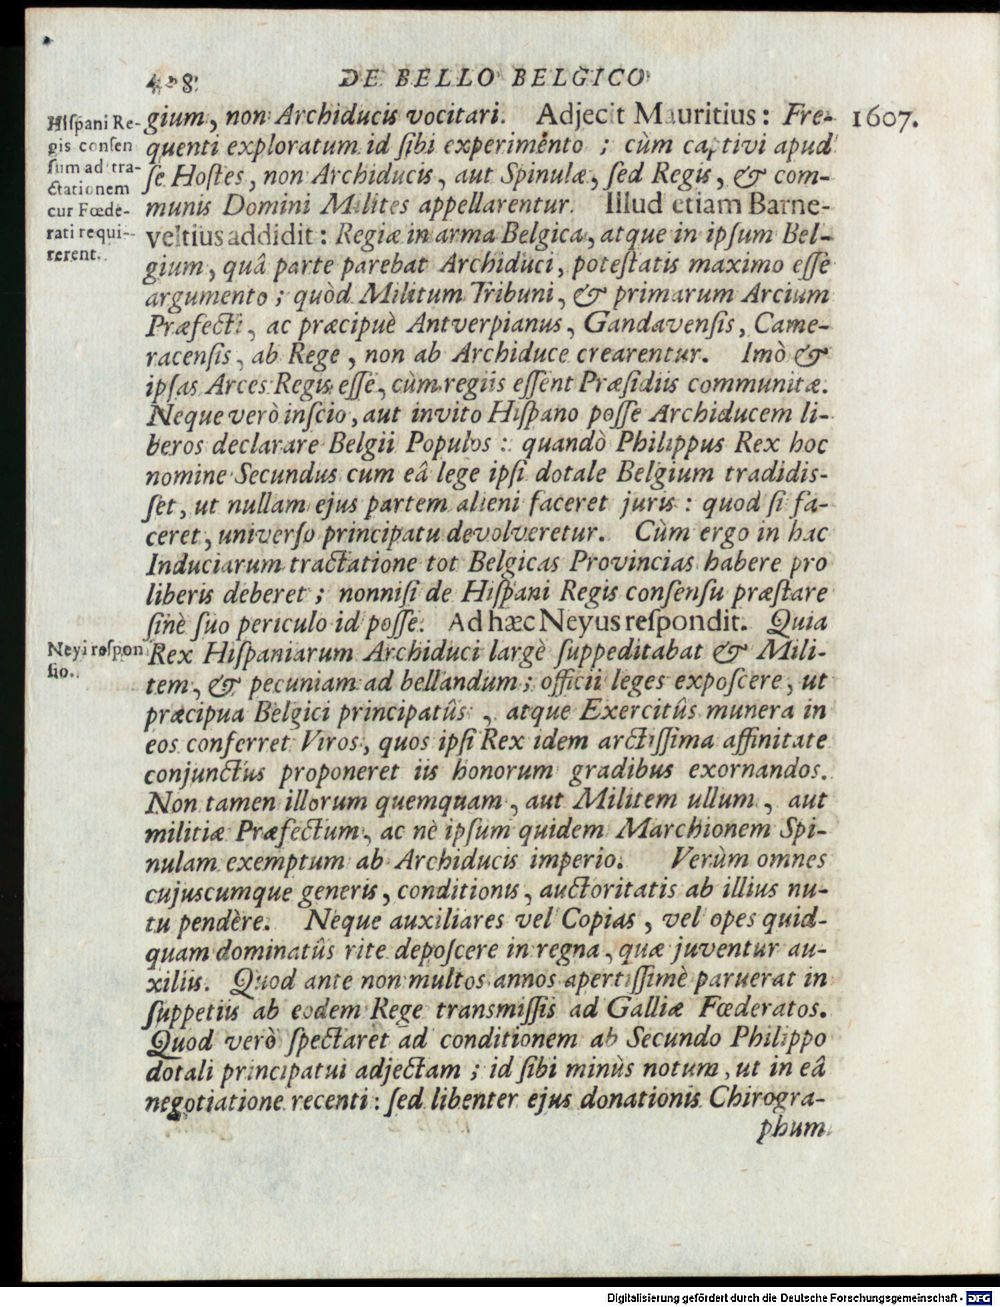 428 DE BELLO BELGICO
Hiſpani Re-
gis conſen
ſum ad tra-
ctationem
cur Fœde-
rati requi-
rerent.
1607.
gium, non Archiducis vocitari. Adjecit Mauritius: Fre-
quenti exploratum id ſibi experimento; cùm captivi apud
ſe Hoſtes, non Archiducis, aut Spinulæ, ſed Regis, & com-
munis Domini Milites appellarentur. Illud etiam Barne-
veltius addidit: Regiæ in arma Belgica, atque in ipſum Bel-
gium, quâ parte parebat Archiduci, poteſtatis maximo eſſe
argumento; quòd Militum Tribuni, & primarum Arcium
Præfecti, ac præcipuè Antverpianus, Gandavenſis, Came-
racenſis, ab Rege, non ab Archiduce crearentur. Imò &
ipſas Arces Regis eſſe, cùm regiis eſſent Præſidiis communitæ.
Neque verò inſcio, aut invito Hiſpano poſſe Archiducem li-
beros declarare Belgii Populos: quandò Philippus Rex hoc
nomine Secundus cum eâ lege ipſi dotale Belgium tradidiſ-
ſet, ut nullam ejus partem alieni faceret juris: quod ſi fa-
ceret, univerſo principatu devolveretur. Cùm ergo in hac
Induciarum tractatione tot Belgicas Provincias habere pro
liberis deberet; nonniſi de Hiſpani Regis conſenſu præſtare
ſinè ſuo periculo id poſſe. Ad hæc Neyus reſpondit. Quia
Neyi reſpon
ſio.
Rex Hiſpaniarum Archiduci largè ſuppeditabat & Mili-
tem, & pecuniam ad bellandum; officii leges expoſcere, ut
præcipua Belgici principatûs, atque Exercitûs munera in
eos conferret Viros, quos ipſi Rex idem arctiſſima affinitate
conjunctus proponeret iis honorum gradibus exornandos.
Non tamen illorum quemquam, aut Militem ullum, aut
militiæ Præfectum, ac nè ipſum quidem Marchionem Spi-
nulam exemptum ab Archiducis imperio. Verùm omnes
cujuscumque generis, conditionis, auctoritatis ab illius nu-
tu pendère. Neque auxiliares vel Copias, vel opes quid-
quam dominatûs rite depoſcere in regna, quæ juventur au-
xiliis. Quod ante non multos annos apertiſſimè paruerat in
ſuppetiis ab eodem Rege transmiſſis ad Galliæ Fœderatos.
Quod verò ſpectaret ad conditionem ab Secundo Philippo
dotali principatui adjectam; id ſibi minùs notum, ut in eâ
negotiatione recenti: ſed libenter ejus donationis Chirogra-
phum
Digitalisierung gefördert durch die Deutsche Forschungsgemeinschaft - DFG